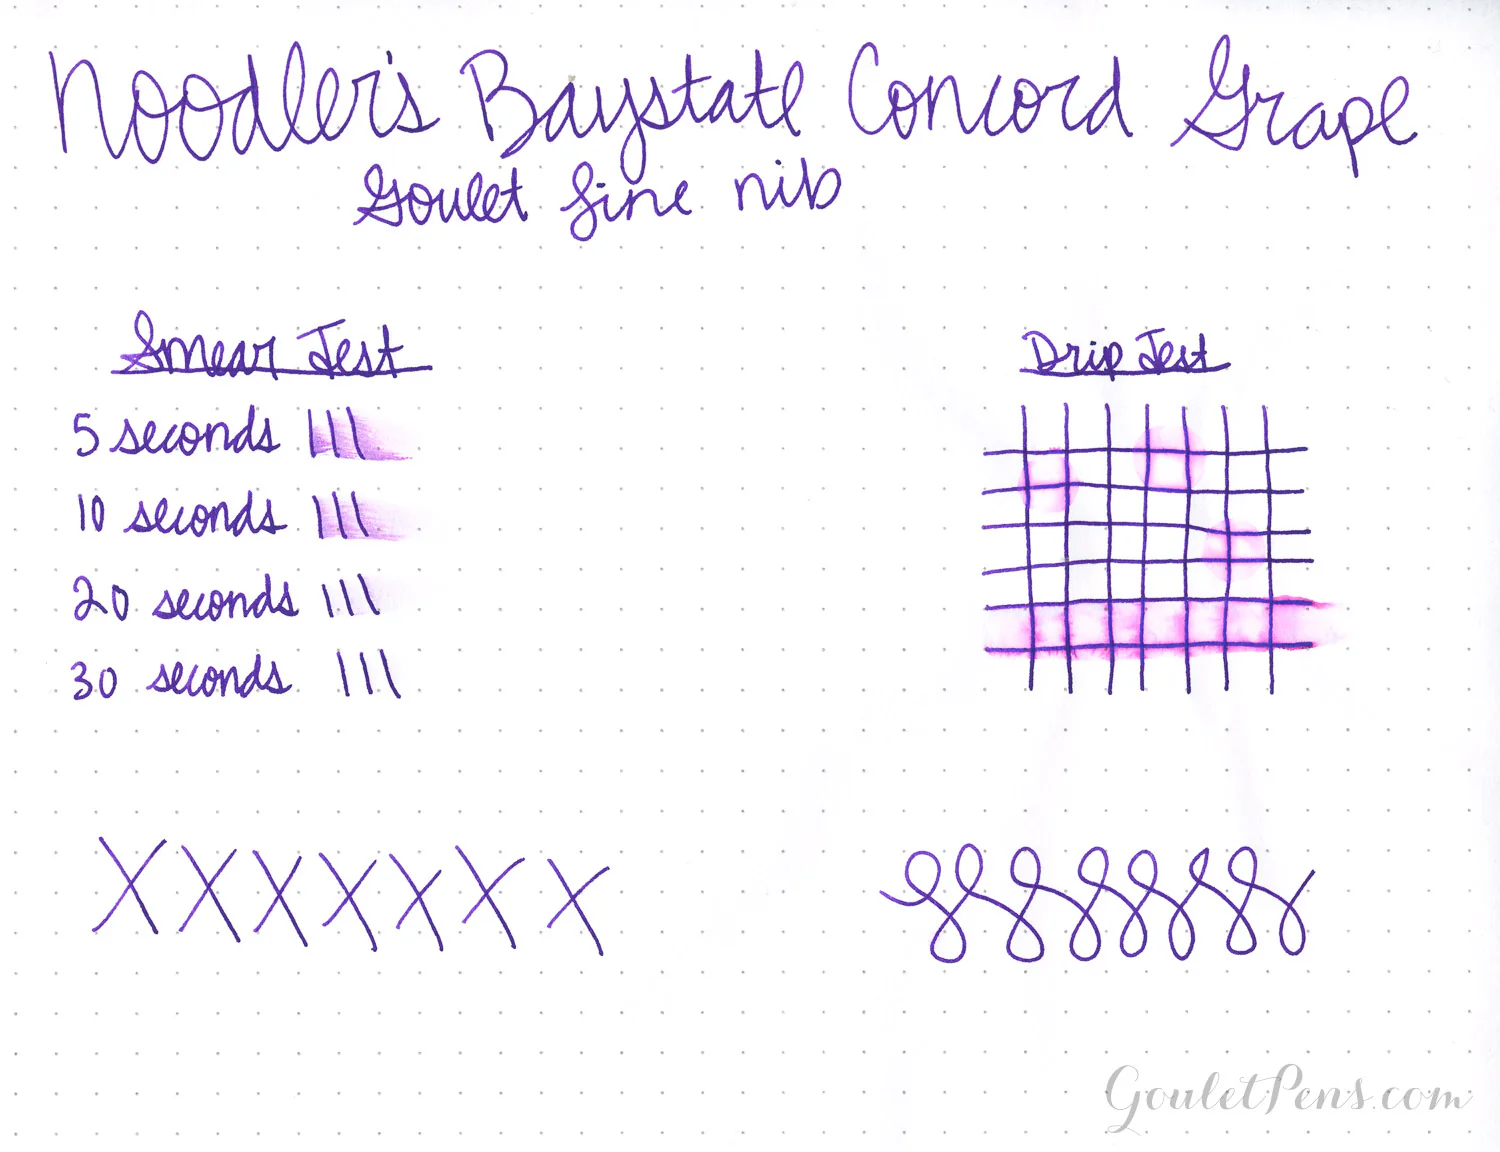 Noodler's Baystate Concord Grape
Goulet fine nib
Smear Test
5 seconds
10 seconds
20 seconds
30 seconds
Drip Test
GouletPens.com